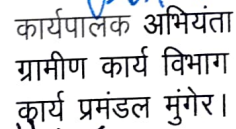 कार्यपालक अभियंता
ग्रामीण कार्य विभाग
कार्य प्रमंडल मुंगेर।